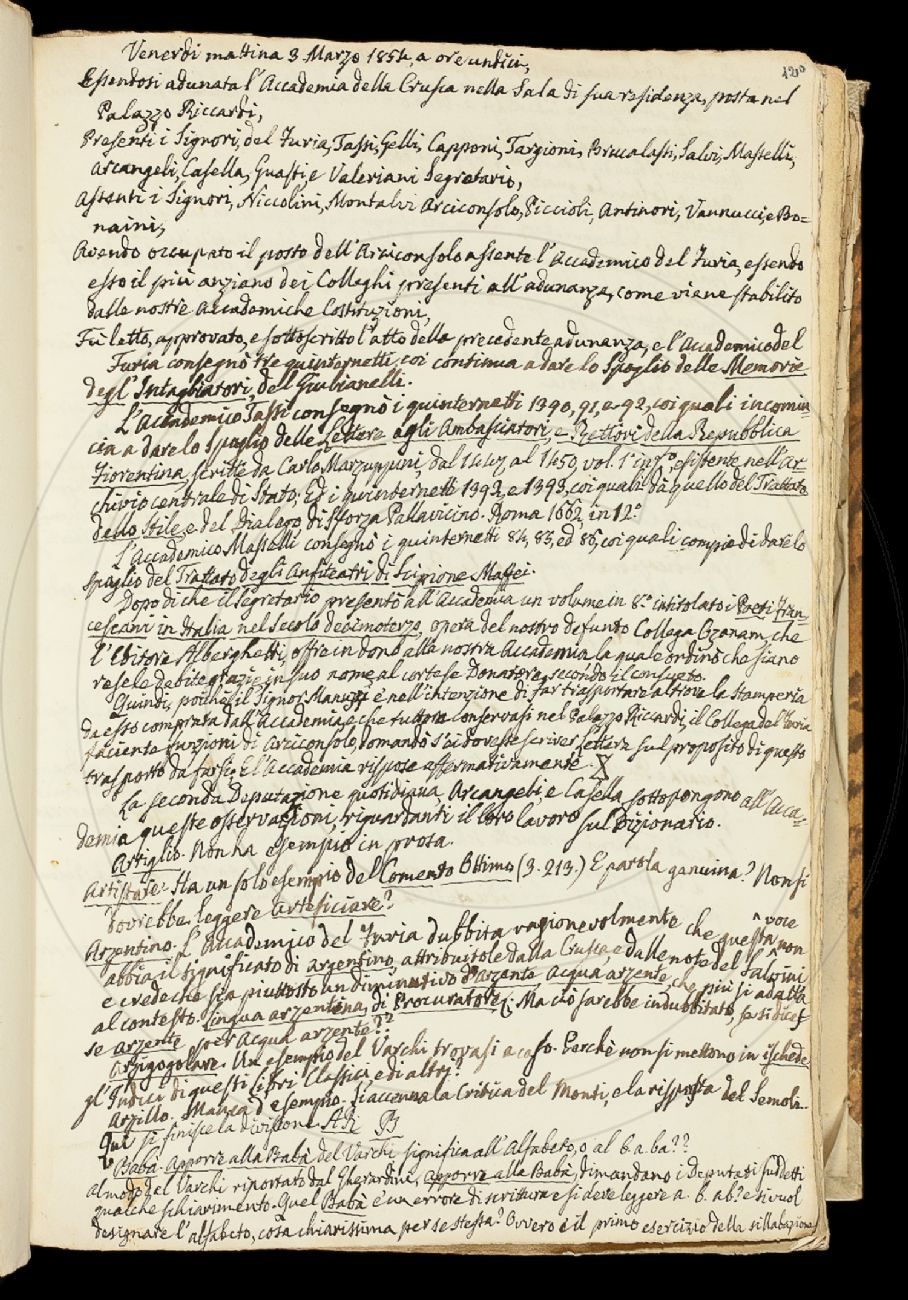 120
Venerdì mattina 3 Marzo 1854, a ore undici,
Essendosi adunata l'Accademia della Crusca nella Sala di sua residenza, posta nel
Palazzo Riccardi,
Presenti i Signori, del Furia, Tassi, Gelli, Capponi, Targioni, Brucalassi, Salvi, Masselli,
Arcangeli, Casella, Guasti, e Valeriani Segretario,
Assenti i Signori, Niccolini, Montalvi Arciconsolo, Piccioli, Antinori, Vannucci, e Bo=
naini,
Avendo occupato il posto dell'Arciconsolo assente l'Accademico del Furia, essendo
esso il più anziano dei Colleghi presenti all'adunanza, come viene stabilito
dalle nostre Accademiche Costituzioni,
Fu letto, approvato, e sottoscritto l'atto della precedente adunanza, e l'Accademico del
Furia consegnò tre quinternetti, coi continua a dare lo Spoglio delle Memorie
degl'Intagliatori, del Giulianelli.
L'Accademico Tassi consegnò i quinternetti 1390, 91, e 92, coi quali incomin
cia a dare lo spoglio delle Lettere agli Ambasciatori, e Rettori della Repubblica
Fiorentina, scritte da Carlo Marzuppini, dal 1447 al 1450, vol. 1° in f°, esistente nell'Ar
chivio centrale di Stato; Ed i quinternetti 1392, e 1393, coi quali dà quello del Trattato
dello Stile, e del Dialogo, di Sforza Pallavicino. Roma 1662, in 12.°
L'Accademico Masselli consegnò i quinternetti 84, 85, ed 86, coi quali compie di dare lo
spoglio del Trattato degli Anfiteatri di Scipione Maffei.
Dopo di che il Segretario presentò all'Accademia un volume in 8.° intitolato i Poeti Fran-
cescani in Italia nel Secolo decimoterzo, opera del nostro defunto Collega Ozanam, che
l'Editore Alberghetti, offre in dono alla nostra Accademia la quale ordinò che siano
rese le debite grazie in suo nome al cortese Donatore, secondo il consueto.
Quindi, poichè il Signor Manuzzi è nell'intenzione di far trasportare altrove la Stamperia
da esso comprata dall'Accademia, e che tuttora conservasi nel Palazzo Riccardi, il Collega del Furia
faciente funzioni di Arciconsolo, domandò s'ei dovesse scriver lettera sul proposito di questo
trasporto da farsi; E l'Accademia rispose affermativamente.
La seconda Deputazione quotidiana Arcangeli, e Casella sottopongono all'Acca=
demia queste osservazioni, riguardanti il loro lavoro sul Dizionario.
Artiglio. Non ha esempio in prosa.
Artisiare. Ha un solo esempio del Comento Ottimo (3. 213.) È parola genuina? Non si
dovrebbe leggere arteficiare?
Arzentino. L'Accademico del Furia dubbita ragionevolmente che questa voce non
abbia il significato di argentino, attribuitole dalla Crusca, e dalle note del Salvini
e crede che sia piuttosto un diminutivo d'arzente acqua arzente, che più si adatta
al contesto. Lingua arzentina, di Procuratore. Ma ciò sarebbe indubbitato, se si dices
se arzente per Acqua arzente??
Arzigogolare. Un esempio del Varchi trovasi a caso. Perchè non si mettono in ischede
gl'Indici di questi libri Classici, e di altri?
Arzillo. Manca d'esempio. Si accenna la Critica del Monti, e la risposta del Semola.
Qui si finisce la divisione AR B
Babà. Apporre alla Babà del Varchi significa all'Alfabeto, o al b.a.ba??
al modo dal Varchi riportato dal Gherardini, apporre alla Babà, dimandano i Deputati suddetti
qualche schiarimento. Quel Babà è un errore di scrittura e si deve leggere a. b. ab? e si vuol
designare l'alfabeto, cosa chiarissima per se stessa? Ovvero è il primo esercizio della sillabazione